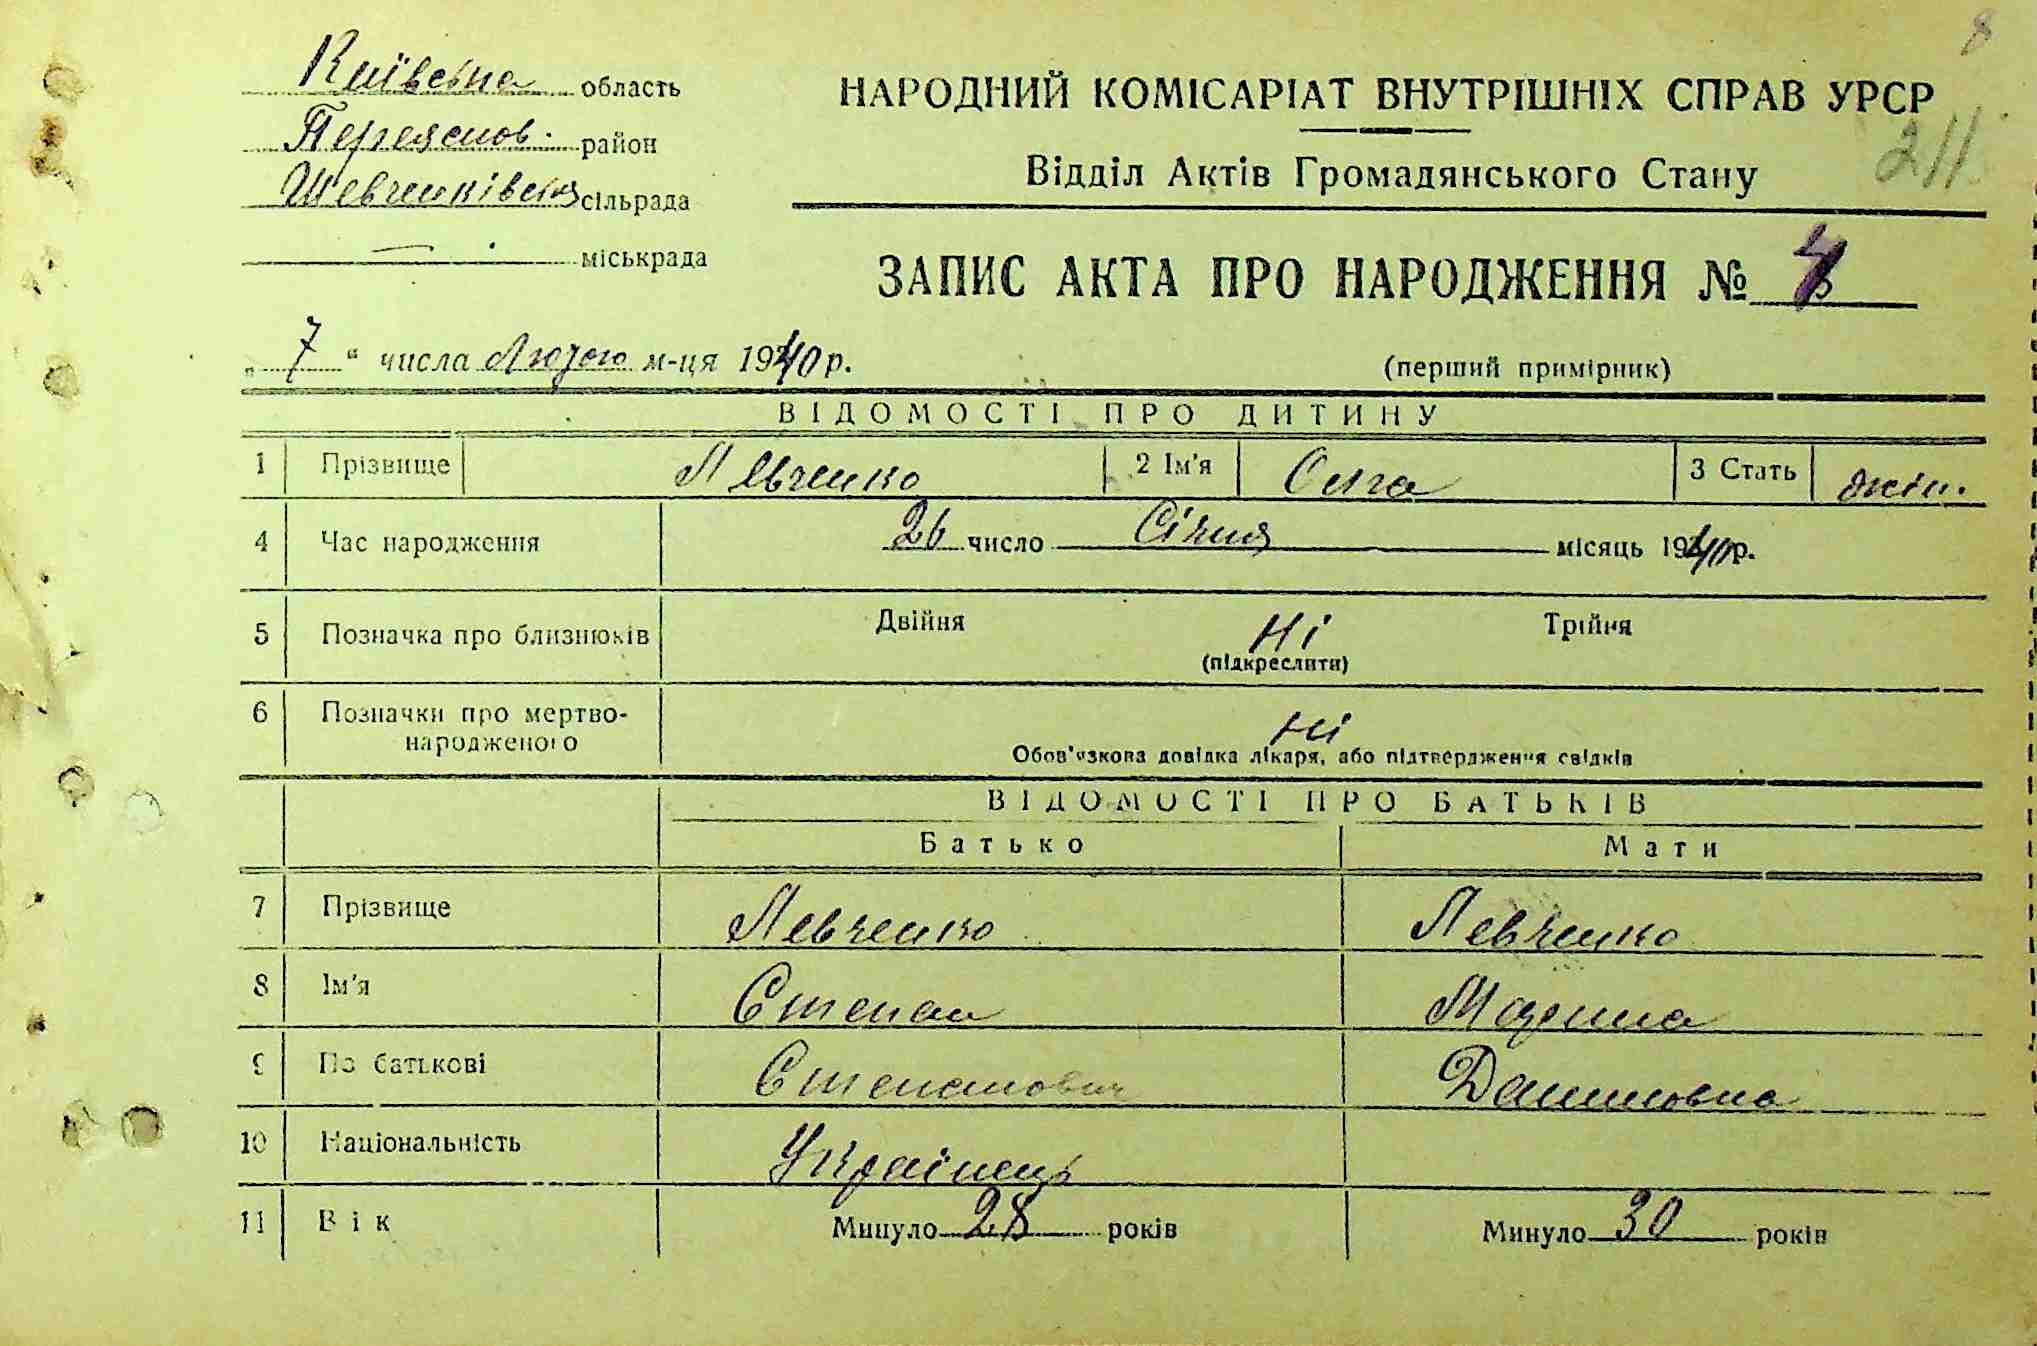 8
Київська область
НАРОДНИЙ КОМІСАРІАТ ВНУТРІШНІХ СПРАВ УРСР
Переяслов. район
211
Відділ Актів Громадянського Стану
Шевченківська сільрада
— міськрада
ЗАПИС АКТА ПРО НАРОДЖЕННЯ №
„7“ числа Лютого м-ця 1940 р.
(перший примірник)
ВІДОМОСТІ ПРО ДИТИНУ
1 Прізвище Левченко 2 Ім'я Ольга 3 Стать жін.
4 Час народження 26 число Січня місяць 1940 р.
5 Позначка про близнюків Двійня Ні Трійня
(підкреслити)
6 Позначки про мертво-
народженого Ні
Обов'язкова довідка лікаря, або підтвердження свідків
ВІДОМОСТІ ПРО БАТЬКІВ
Батько Мати
7 Прізвище Левченко Левченко
8 Ім'я Степан
9 По батькові Степанович
10 Національність Українець
11 Вік Минуло 28 років Минуло 30 років